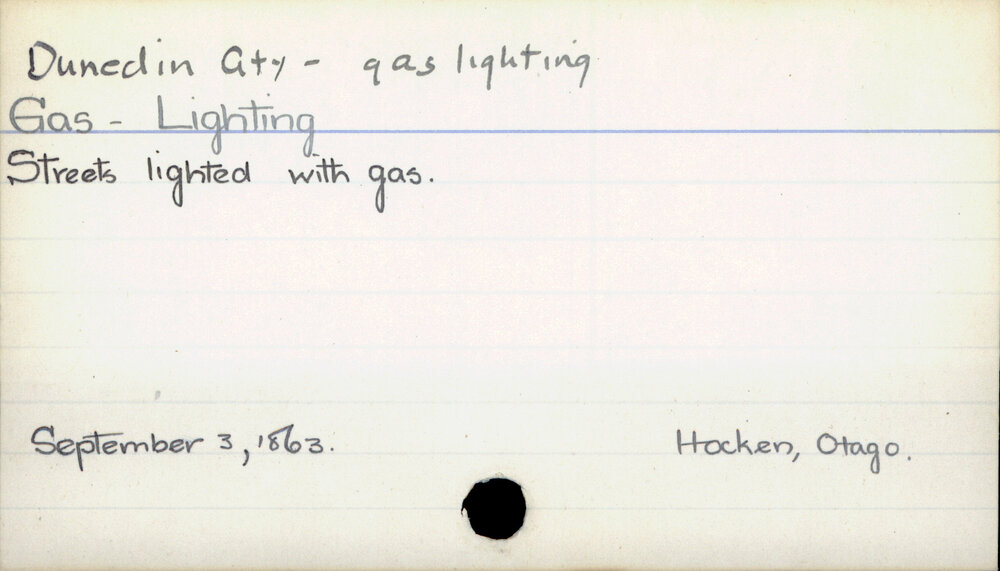 Dunedin City - gas lighting
Gas - Lighting
Streets lighted with gas.
September 3, 1863. Hocken, Otago.